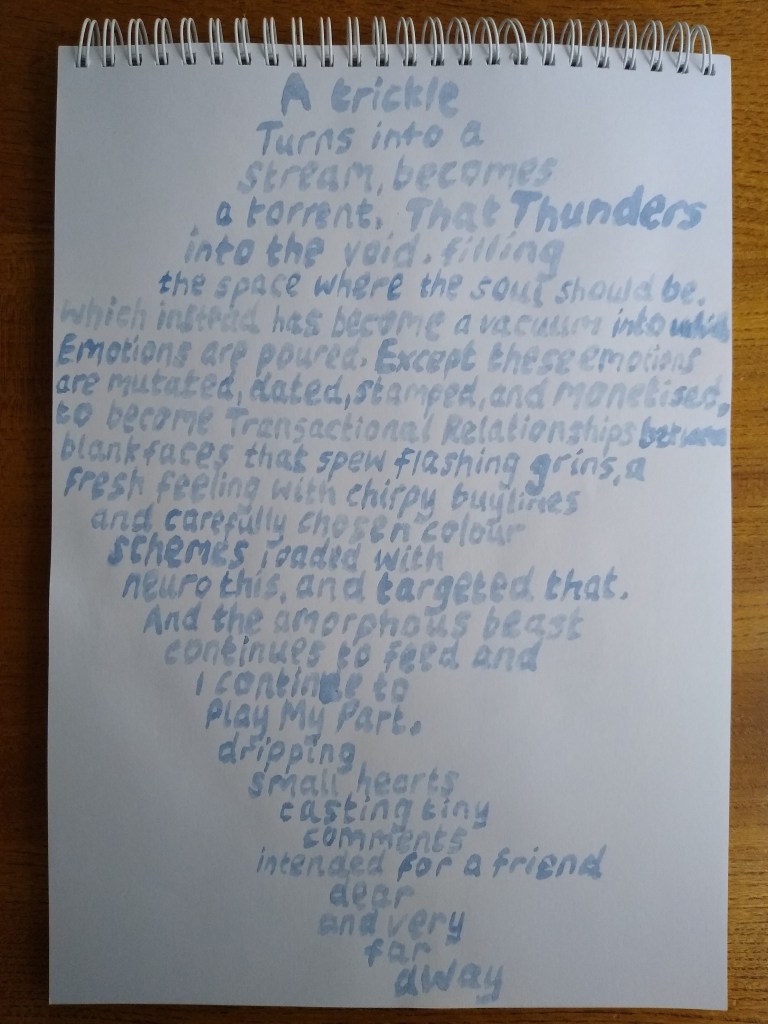 A trickle
Turns into a
stream, becomes
a torrent. That Thunders
into the void. filling
the space where the soul should be.
which instead has become a vacuum into which
Emotions are poured. Except these emotions
are mutated, dated, stamped, and monetised,
to become Transactional Relationships between
blank faces that spew flashing grins, a
fresh feeling with chirpy buylines
and carefully chosen colour
schemes loaded with
neuro this, and targeted that.
And the amorphous beast
continues to feed and
I continue to
Play My Part.
dripping
small hearts
casting tiny
comments
intended for a friend
dear
and very
far
away